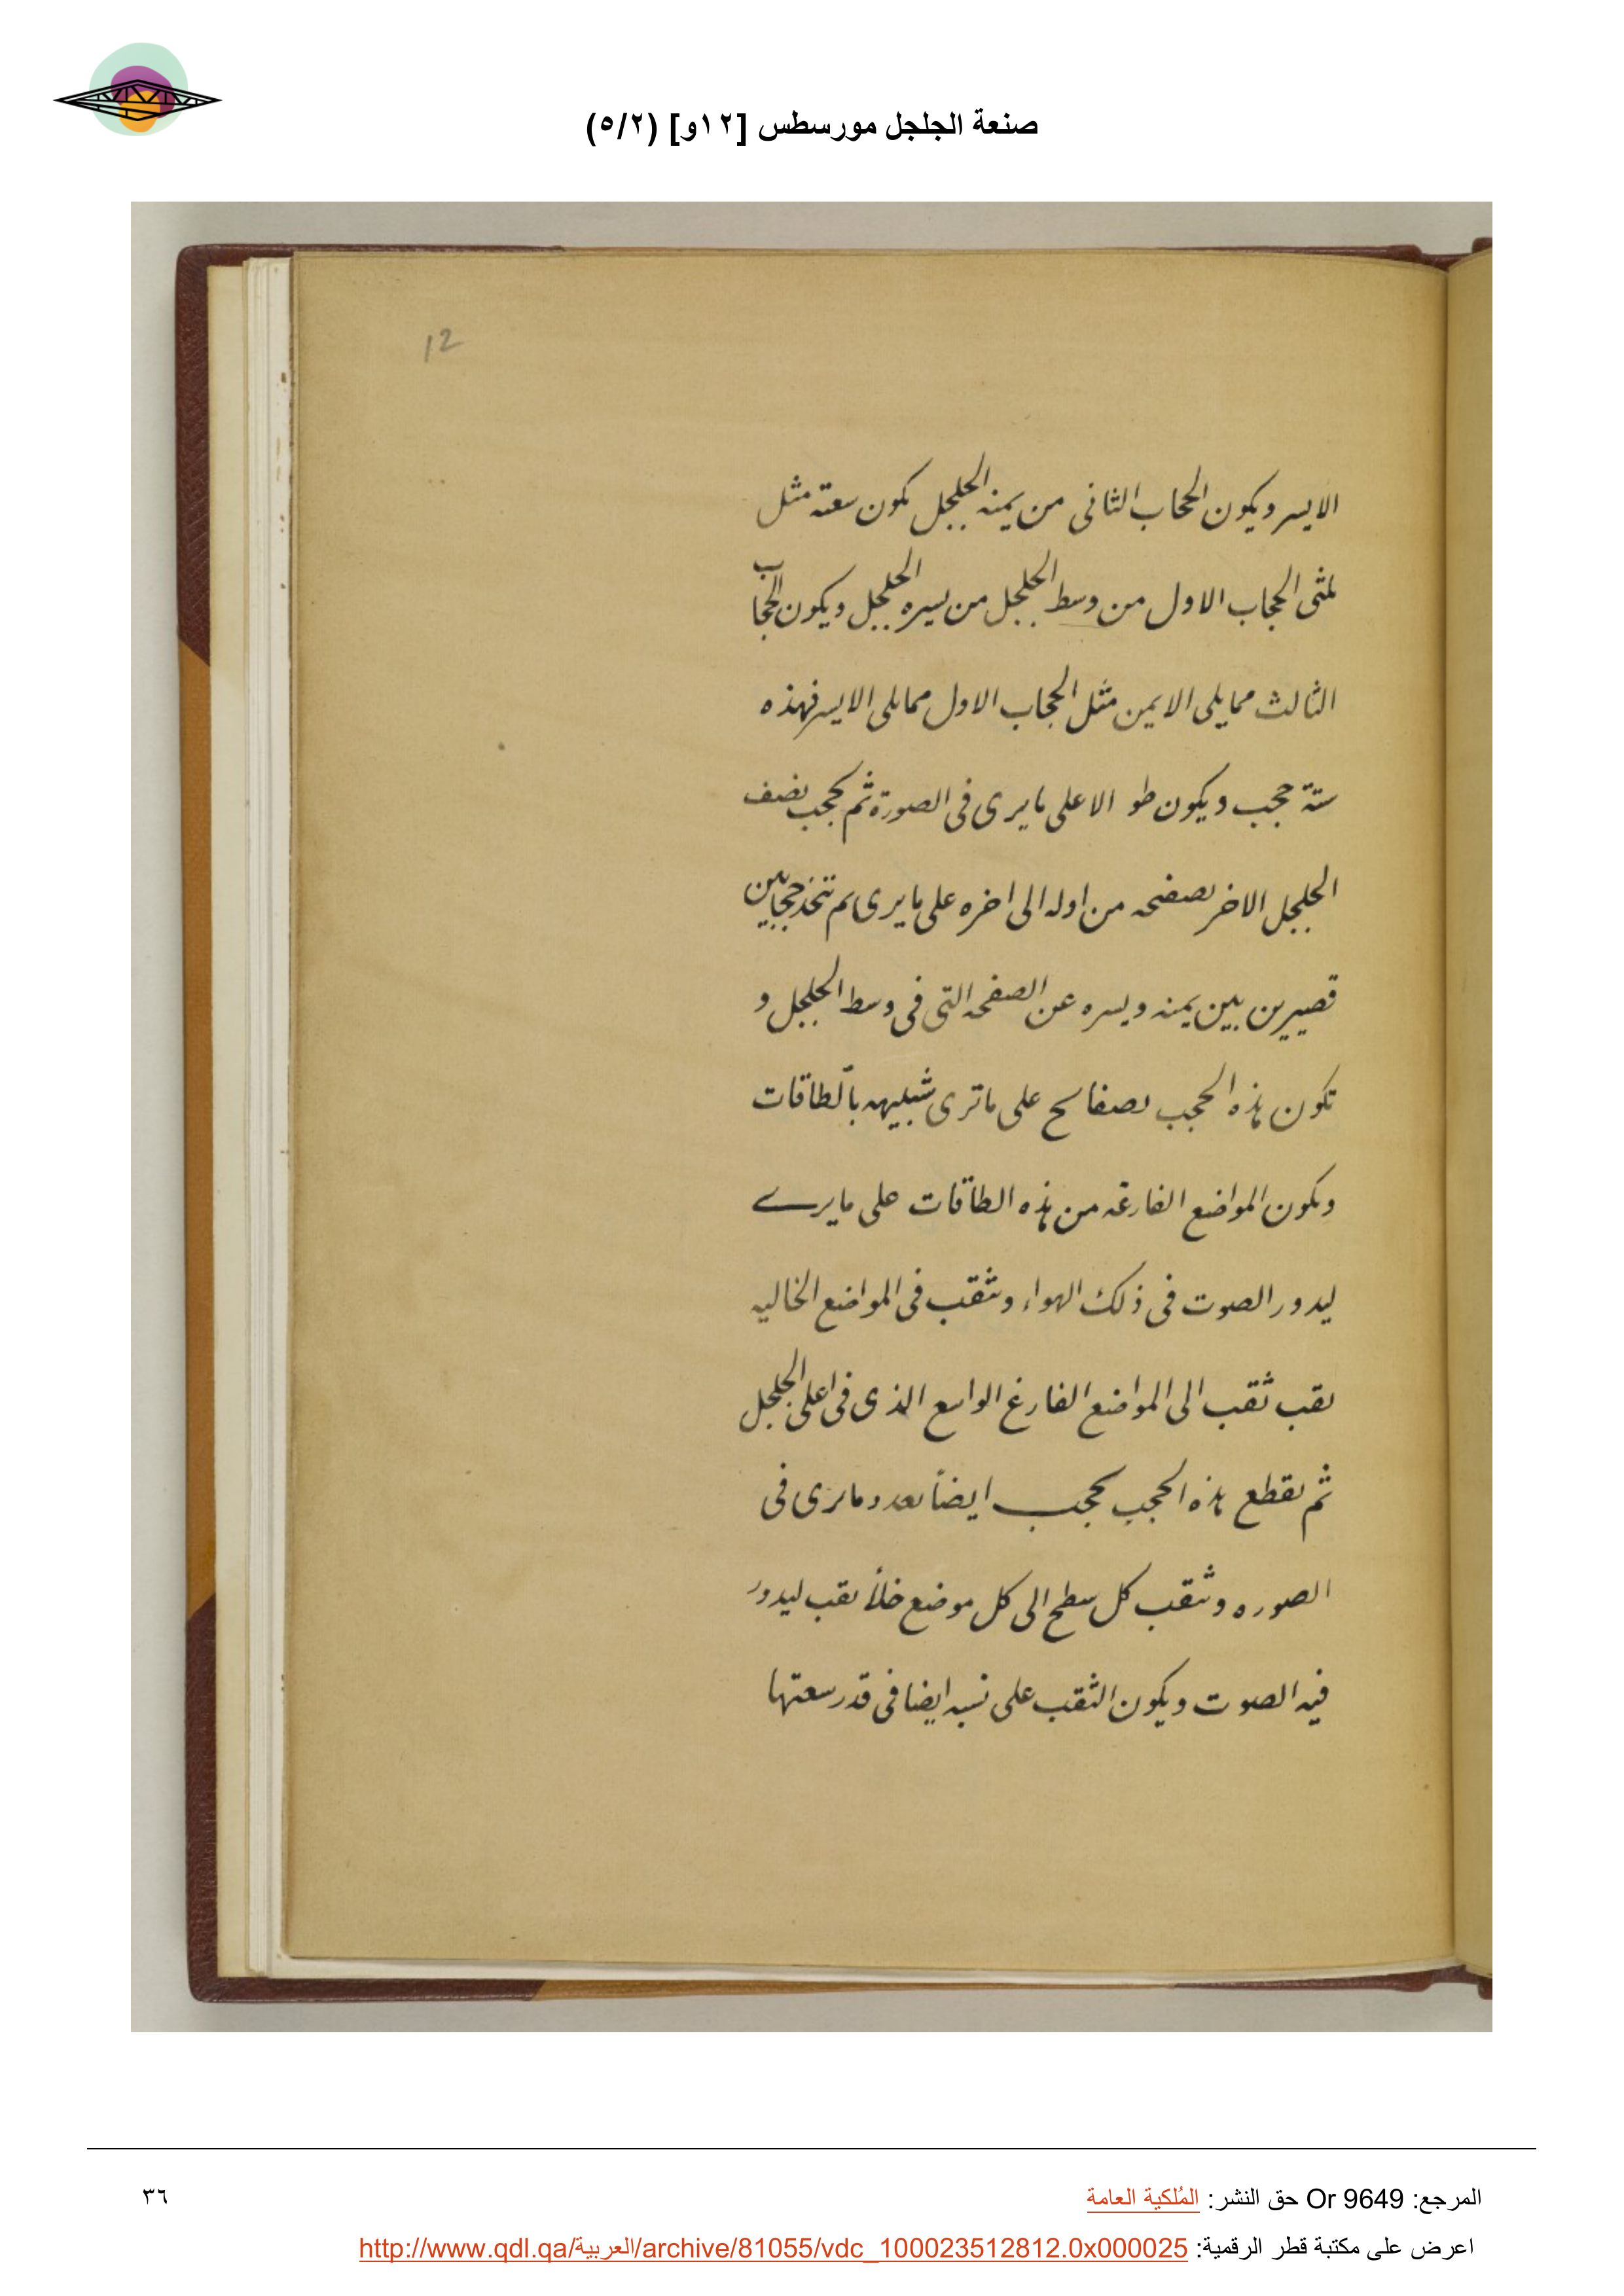 صنعة الجلجل مورسطس [١٢و] (٥/٢)
12
الايسر ويكون الحجاب الثانى من يمنه الجلجل تكون سعته مثل
الحجاب الاول من وسط الجلجل من يسره الجلجل ويكون الحجاب
الثالث ممايلى الايمن مثل الحجاب الاول ممايلى الايسر فهذه
ستة حجب ويكون طو الاعلى مايرى فى الصورة ثم تحجب نصف
الجلجل الاخر بصفحه من اوله الى اخره على مايرى ثم تتخذ حجابين
قصيرين بين يمنه ويسره عن الصفحه التى فى وسط الجلجل و
تكون هذه الحجب بصفائح على ماترى شبيهه بالطاقات
وتكون المواضع الفارغه من هذه الطاقات على مايرى
ليدور الصوت فى ذلك الهواء وتثقب فى المواضع الخاليه
ثقب ثقب الى المواضع الفارغ الواسع الذى فى اعلى الجلجل
ثم تقطع هذه الحجب بحجب ايضاً بعدد مايرى فى
الصوره وتثقب كل سطح الى كل موضع خلأ ثقب ليدور
فيه الصوت ويكون الثقب على نسبه ايضا فى قدر سعتها
المرجع: Or 9649 حق النشر: المُلكية العامة
٣٦
اعرض على مكتبة قطر الرقمية: http://www.qdl.qa/العربية/archive/81055/vdc_100023512812.0x000025